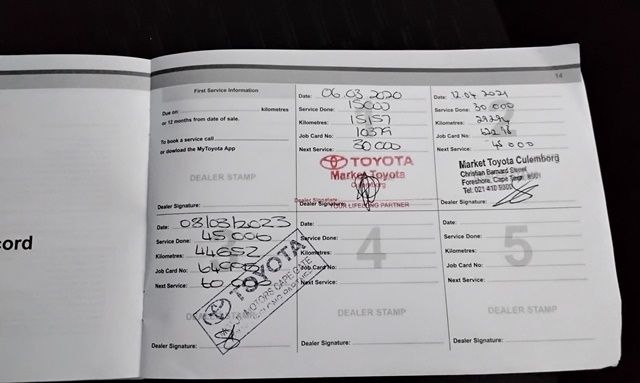 cord
14
First Service Information
Due on: kilometres
or 12 months from date of sale.
To book a service call
or dowload the MyToyota App
DEALER STAMP
Dealer Signature:
Date: 06.03.2020
Service Done: 15000
Kilometres: 15157
Job Card No:
Next Service: 30 000
TOYOTA
Market Toyota
Culemborg
Dealer Signature:
YOUR LIFELONG PARTNER
Date: 12.04.2021
Service Done: 30 000
Kilometres:
Job Card No:
Next Service: 45 000
Market Toyota Culemborg
Christian Barnard Street
Foreshore, Cape Town, 8001
Tel: 021 410 9300
Dealer Signature:
Date: 08/03/2023
Service Done: 45000
Kilometres: 44652
Job Card No:
Next Service: 60 000
TOYOTA
MOTORS CAPE GATE
DEALER STAMP
Dealer Signature:
Date:
Service Done:
4
Kilometres:
Job Card No:
Next Service:
DEALER STAMP
Dealer Signature:
Date:
Service Done:
5
Kilometres:
Job Card No:
Next Service:
DEALER STAMP
Dealer Signature: